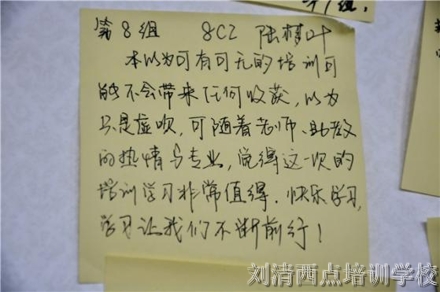 第8组 8C2 陆梦叶
本以为可有可无的培训可
能不会带来任何收获，以为
只是虚吹，可随着老师、助教
的热情与专业，觉得这一次的
培训学习非常值得。快乐学习，
学习让我们不断前行！
刘清西点培训学校